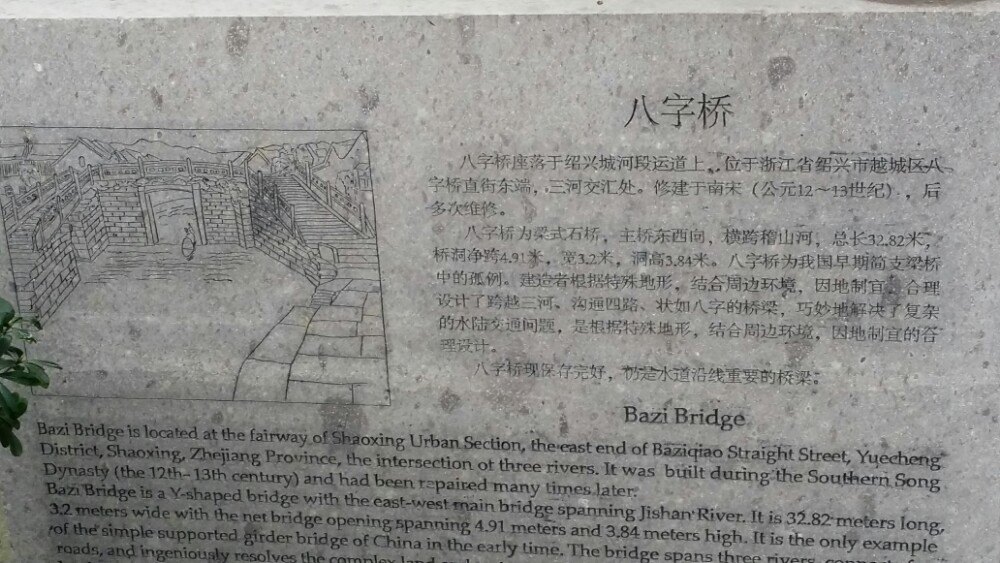 八字桥
八字桥座落于绍兴城河段运道上，位于浙江省绍兴市越城区八
字桥直街东端，三河交汇处。修建于南宋（公元12～13世纪），后
多次维修。
八字桥为梁式石桥，主桥东西向，横跨稽山河，总长32.82米，
桥洞净跨4.91米，宽3.2米，洞高3.84米。八字桥为我国早期简支梁桥
中的孤例。建造者根据特殊地形，结合周边环境，因地制宜、合理
设计了跨越三河、沟通四路、状如八字的桥梁，巧妙地解决了复杂
的水陆交通问题，是根据特殊地形，结合周边环境，因地制宜的合
理设计。
八字桥现保存完好，仍是水道沿线重要的桥梁。
Bazi Bridge
Bazi Bridge is located at the fairway of Shaoxing Urban Section, the east end of Baziqiao Straight Street, Yuecheng
District, Shaoxing, Zhejiang Province, the intersection of three rivers. It was built during the Southern Song
Dynasty (the 12th-13th century) and had been repaired many times later.
Bazi Bridge is a Y-shaped bridge with the east-west main bridge spanning Jishan River. It is 32.82 meters long,
3.2 meters wide with the net bridge opening spanning 4.91 meters and 3.84 meters high. It is the only example
of the simple supported girder bridge of China in the early time. The bridge spans three rivers,
roads, and ingeniously resolves the complex